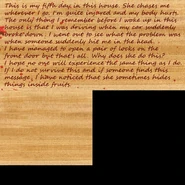 This is my fifth day in this house. She chases me
wherever I go. I'm quite injured and my body hurts.
The only thing I remember before I woke up in this
house is that I was driving when my car suddenly
broke down. I went out to see what the problem was
when someone suddenly hit me in the head.
I have managed to open a pair of locks on the
front door but that's all. Why does she do this?
I hope no one will experience the same thing as I do.
If I do not survive this and if someone finds this
message, I have noticed that she sometimes hides
things inside fruits